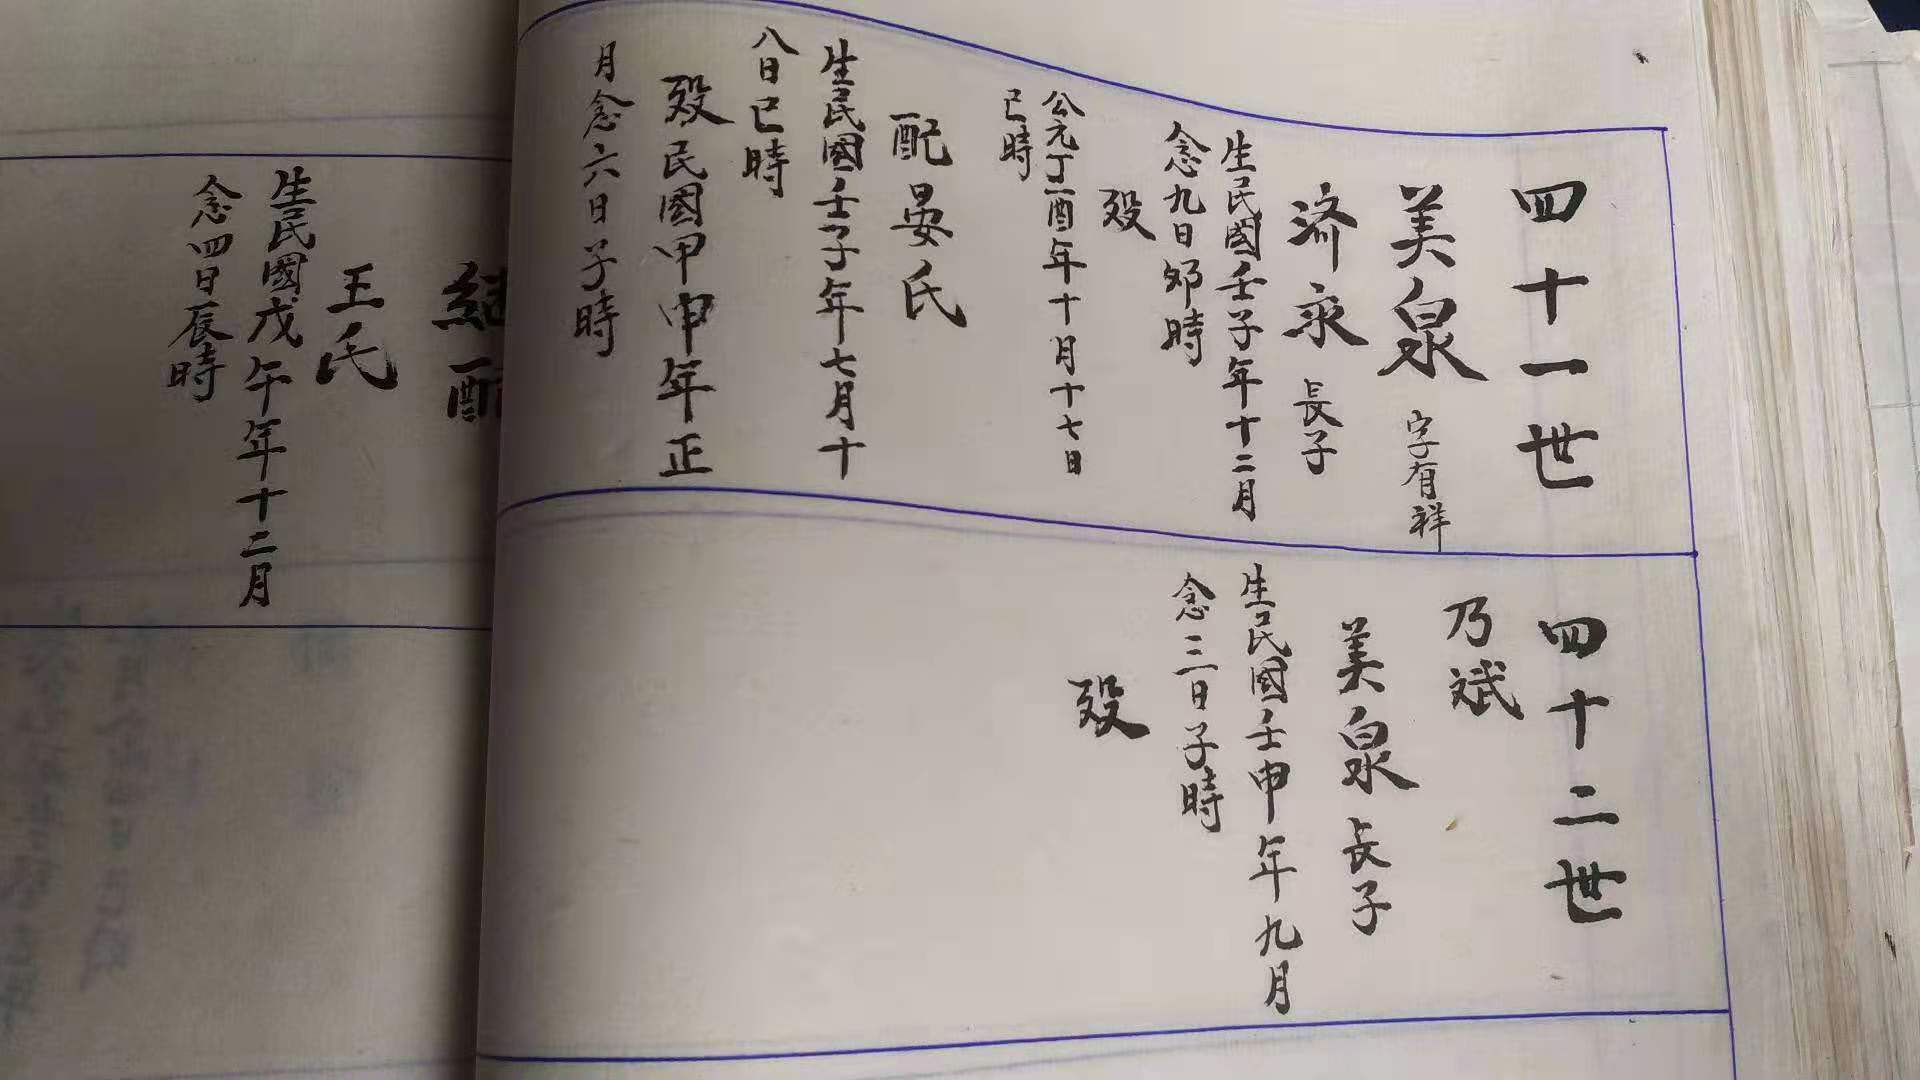 四十一世
美泉 字有祥
濟永 長子
生民國壬子年十二月
念九日卯時
殁
公元丁酉年十月十七日
巳時
配晏氏
生民國壬子年七月十
八日巳時
殁民國甲申年正
月念六日子時
四十二世
乃斌
美泉 長子
生民國壬申年九月
念三日子時
殁
配
王氏
生民國戊午年十二月
念四日辰時